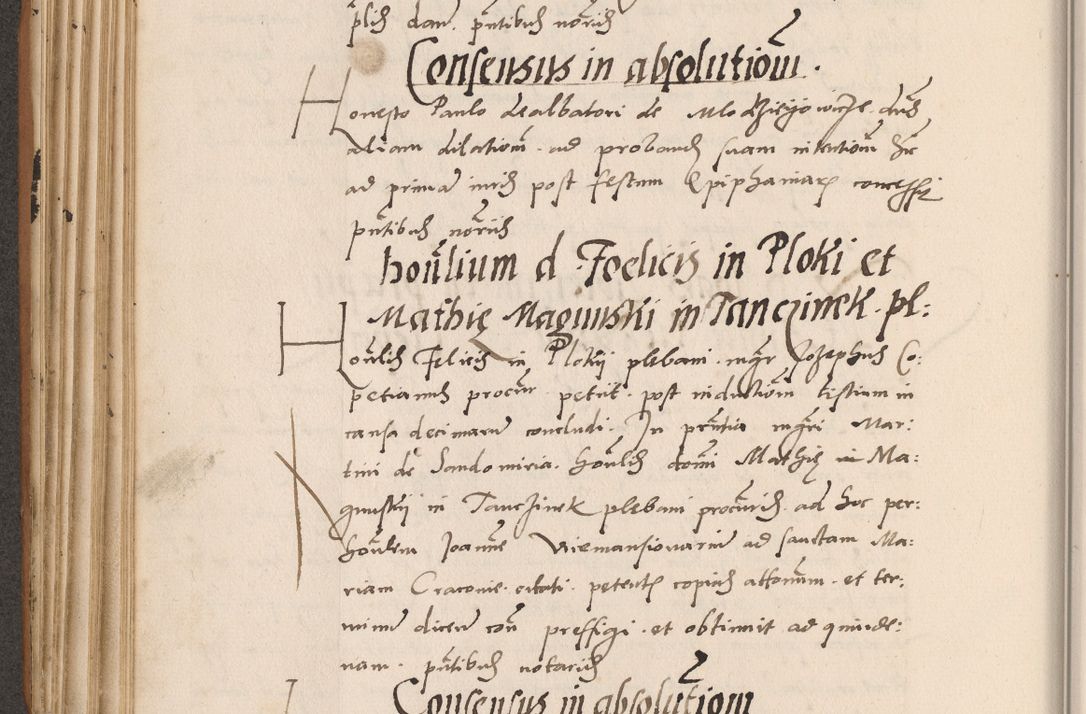 plis dan. pntibus noriis
Consensus in absolutiom.
Honesto Paulo dealbatori de Mlodzieyowicze dns
aliam dilatiom ad proband suam intentiom hic
ad prima iuris post festum Epiphaniar concessit
pntibus noriis
honlium d. Foelicis in Ploki et
Mathię Magnuski in Tanczinek pl:
Honlis Felicis in Plokij plebani mgr Josephus Co:
petianus procur petiit post inductiom testium in
causa decimarum concludi. In prntia mgri Mar:
tini de Sandomiria honlis domi Mathię in Ma:
gnuskij in Tanczinek plebani procuris ad hoc per
honlem Joanne Viemansionarium ad sanctam Ma:
riam Cracovie citati petentis copias attonum et ter:
minum dicen con preffigi et obtinuit ad quinde:
nam. pntibus notariis
Consensus in absolutiom